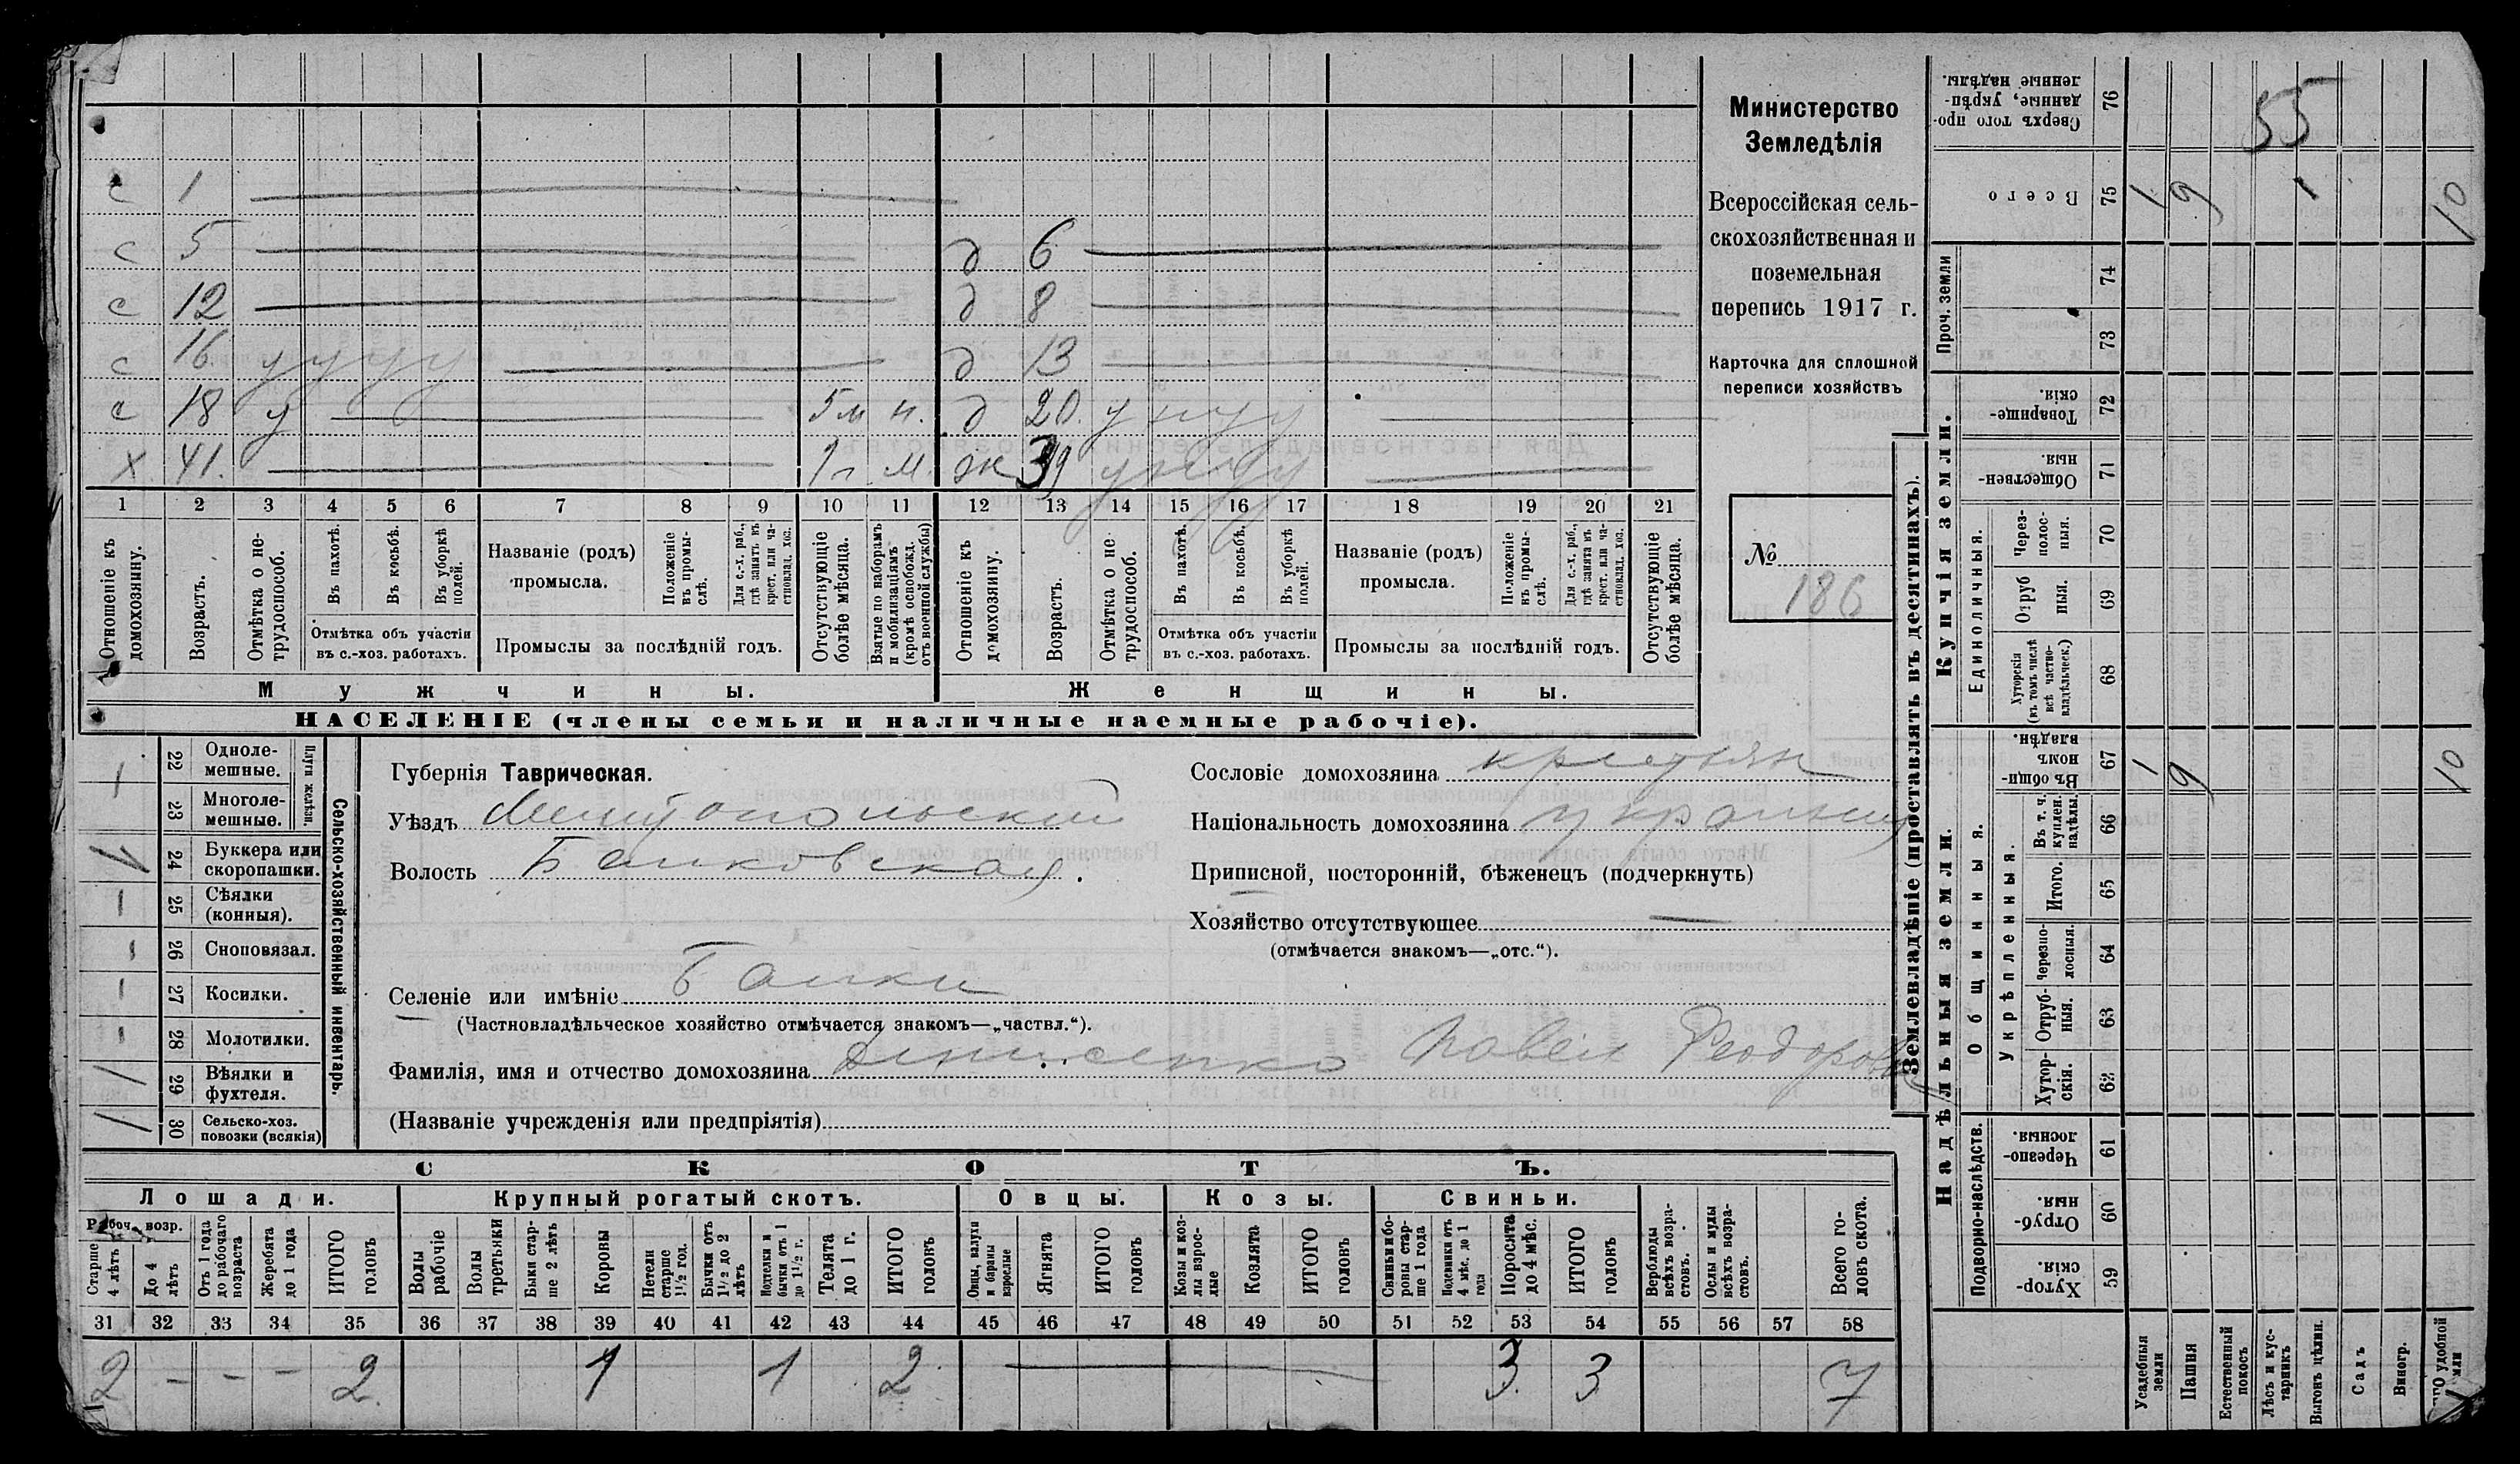 с 1
с 5 д 6
с 12 д 8
с 16 у у у у д 13
с 18 у 5 м н. д 20. у н у у
х 41. 1 г. м. ж 39 у н у у
1 2 3 4 5 6 7 8 9 10 11 12 13 14 15 16 17 18 19 20 21
Отношеніе къ домохозяину.
Возрастъ.
Отмѣтка о нетрудоспособ.
Въ пахотѣ.
Въ косьбѣ.
Въ уборкѣ полей.
Отмѣтка объ участіи
въ с.-хоз. работахъ.
Названіе (родъ)
промысла.
Положеніе въ промыслѣ.
Для с.-х. раб., гдѣ занятъ въ крест. или частновлад. хоз.
Промыслы за послѣдній годъ.
Отсутствующіе болѣе мѣсяца.
Взятые по наборамъ и мобилизаціямъ (кромѣ освобожд. отъ военной службы)
Отношеніе къ домохозяину.
Возрастъ.
Отмѣтка о нетрудоспособ.
Въ пахотѣ.
Въ косьбѣ.
Въ уборкѣ полей.
Отмѣтка объ участіи
въ с.-хоз. работахъ.
Названіе (родъ)
промысла.
Положеніе въ промыслѣ.
Для с.-х. раб., гдѣ занята въ крест. или частновлад. хоз.
Промыслы за послѣдній годъ.
Отсутствующіе болѣе мѣсяца.
Мужчины. Женщины.
НАСЕЛЕНІЕ (члены семьи и наличные наемные рабочіе).
Министерство
Земледѣлія
Всероссійская сель-
скохозяйственная и
поземельная
перепись 1917 г.
Карточка для сплошной
переписи хозяйствъ
№
186
Сельско-хозяйственный инвентарь.
Плуги желѣзн.
22 Однолемешные.
23 Многолемешные.
24 Буккера или скоропашки.
25 Сѣялки (конныя).
26 Сноповязал.
27 Косилки.
28 Молотилки.
29 Вѣялки и фухтеля.
30 Сельско-хоз. повозки (всякія)
Губернія Таврическая.
Уѣздъ Мелитопольскій
Волость Балковская.
Селеніе или имѣніе Балки
(Частновладѣльческое хозяйство отмѣчается знакомъ—„частвл.“).
Фамилія, имя и отчество домохозяина Павел Феодоров
(Названіе учрежденія или предпріятія)
Сословіе домохозяина крестьян
Національность домохозяина украинец
Приписной, посторонній, бѣженецъ (подчеркнуть)
Хозяйство отсутствующее —
(отмѣчается знакомъ—„отс.“).
СКОТЪ.
Лошади. Крупный рогатый скотъ. Овцы. Козы. Свиньи.
Рабоч. возр.
Старше 4 лѣтъ
До 4 лѣтъ
Отъ 1 года до рабочаго возраста
Жеребята до 1 года
ИТОГО головъ
Волы рабочіе
Волы третьяки
Быки старше 2 лѣтъ
Коровы
Нетели старше 1½ год.
Бычки отъ 1½ до 2 лѣтъ
Подтелки и бычки отъ 1 до 1½ г.
Телята до 1 г.
ИТОГО головъ
Овцы, валухи и бараны взрослые
Ягнята
ИТОГО головъ
Козы и козлы взрослые
Козлята
ИТОГО головъ
Свиньи и боровы старше 1 года
Подсвинки отъ 4 мѣс. до 1 года
Поросята до 4 мѣс.
ИТОГО головъ
Верблюды всѣхъ возрастовъ.
Ослы и мулы всѣхъ возрастовъ.
Всего головъ скота.
31 32 33 34 35 36 37 38 39 40 41 42 43 44 45 46 47 48 49 50 51 52 53 54 55 56 57 58
2 - - - 2 1 1 2 3 3 7
Землевладѣніе (проставлять въ десятинахъ).
Купчія земли.
Надѣльныя земли.
Сверхъ того проданные, укрѣпленные надѣлы. 76 55
Всего 75 1 9 1 10
Проч. земли
74
73
Товарищескія. 72
Общественныя. 71
Единоличныя.
Черезполосныя. 70
Отрубныя. 69
Хуторскія (въ томъ числѣ всѣ частновладѣльческ.) 68
Общинныя.
Въ общинномъ владѣн. 67 1 9 10
Укрѣпленныя.
Въ т. ч. куплен. надѣлы. 66
Итого. 65
Черезполосныя. 64
Отрубныя. 63
Хуторскія. 62
Подворно-наслѣдств.
Черезполосныя. 61
Отрубныя. 60
Хуторскія. 59
Усадебныя земли
Пашня
Естественный покосъ
Лѣсъ и кустарникъ
Выгонъ цѣлин.
Садъ
Виногр.
удобной